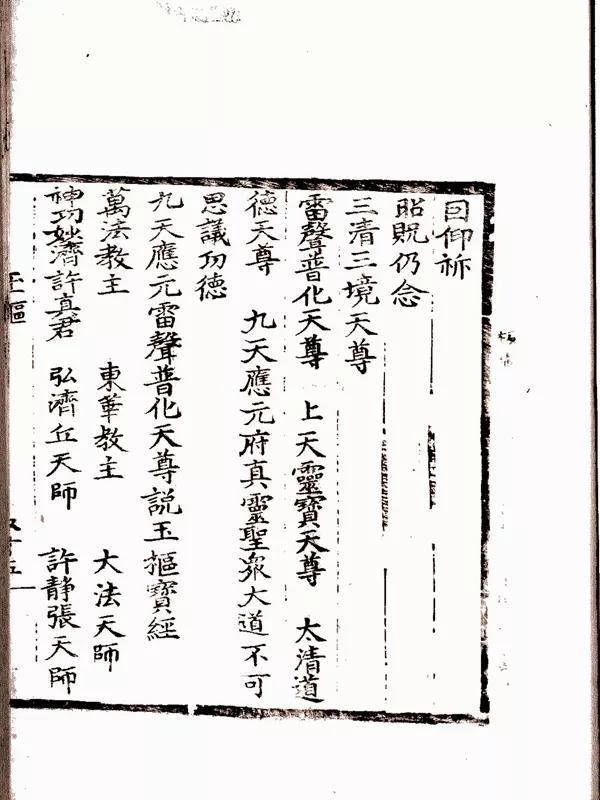 回仰祈
昭貺仍念
三清三境天尊
雷聲普化天尊 上天靈寶天尊 太清道
德天尊 九天應元府真靈聖衆大道不可
思議功德
九天應元雷聲普化天尊説玉樞寶經
萬法教主 東華教主 大法天師
神功妙濟許真君 弘濟丘天師 許静張天師
玉樞